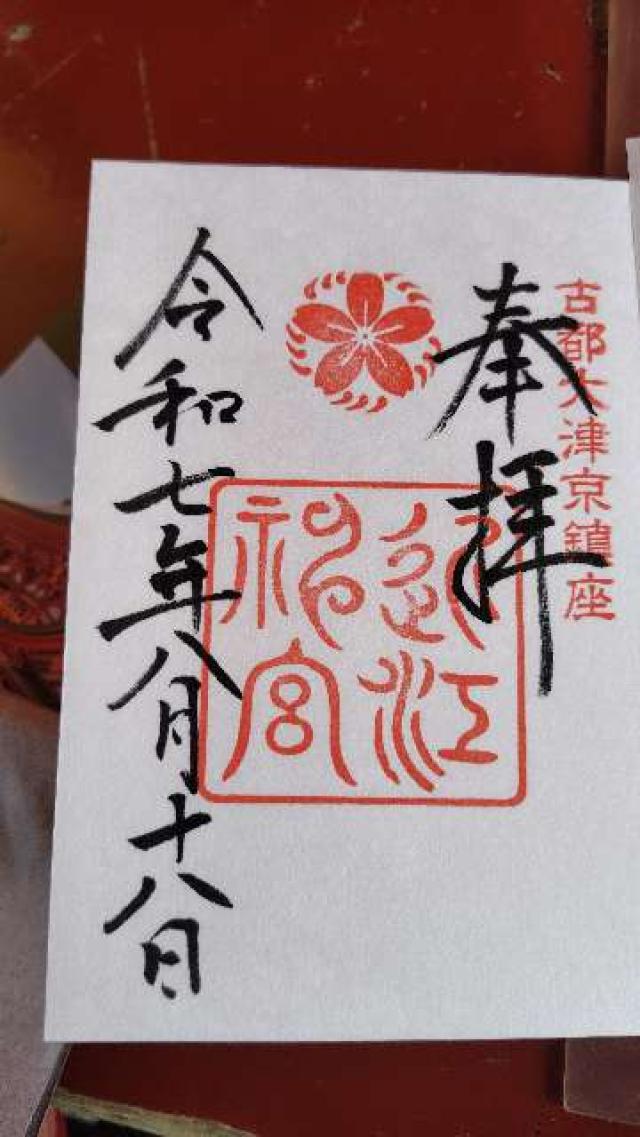 古都大津京鎮座
奉拝
近江
神宮
令和七年八月十八日